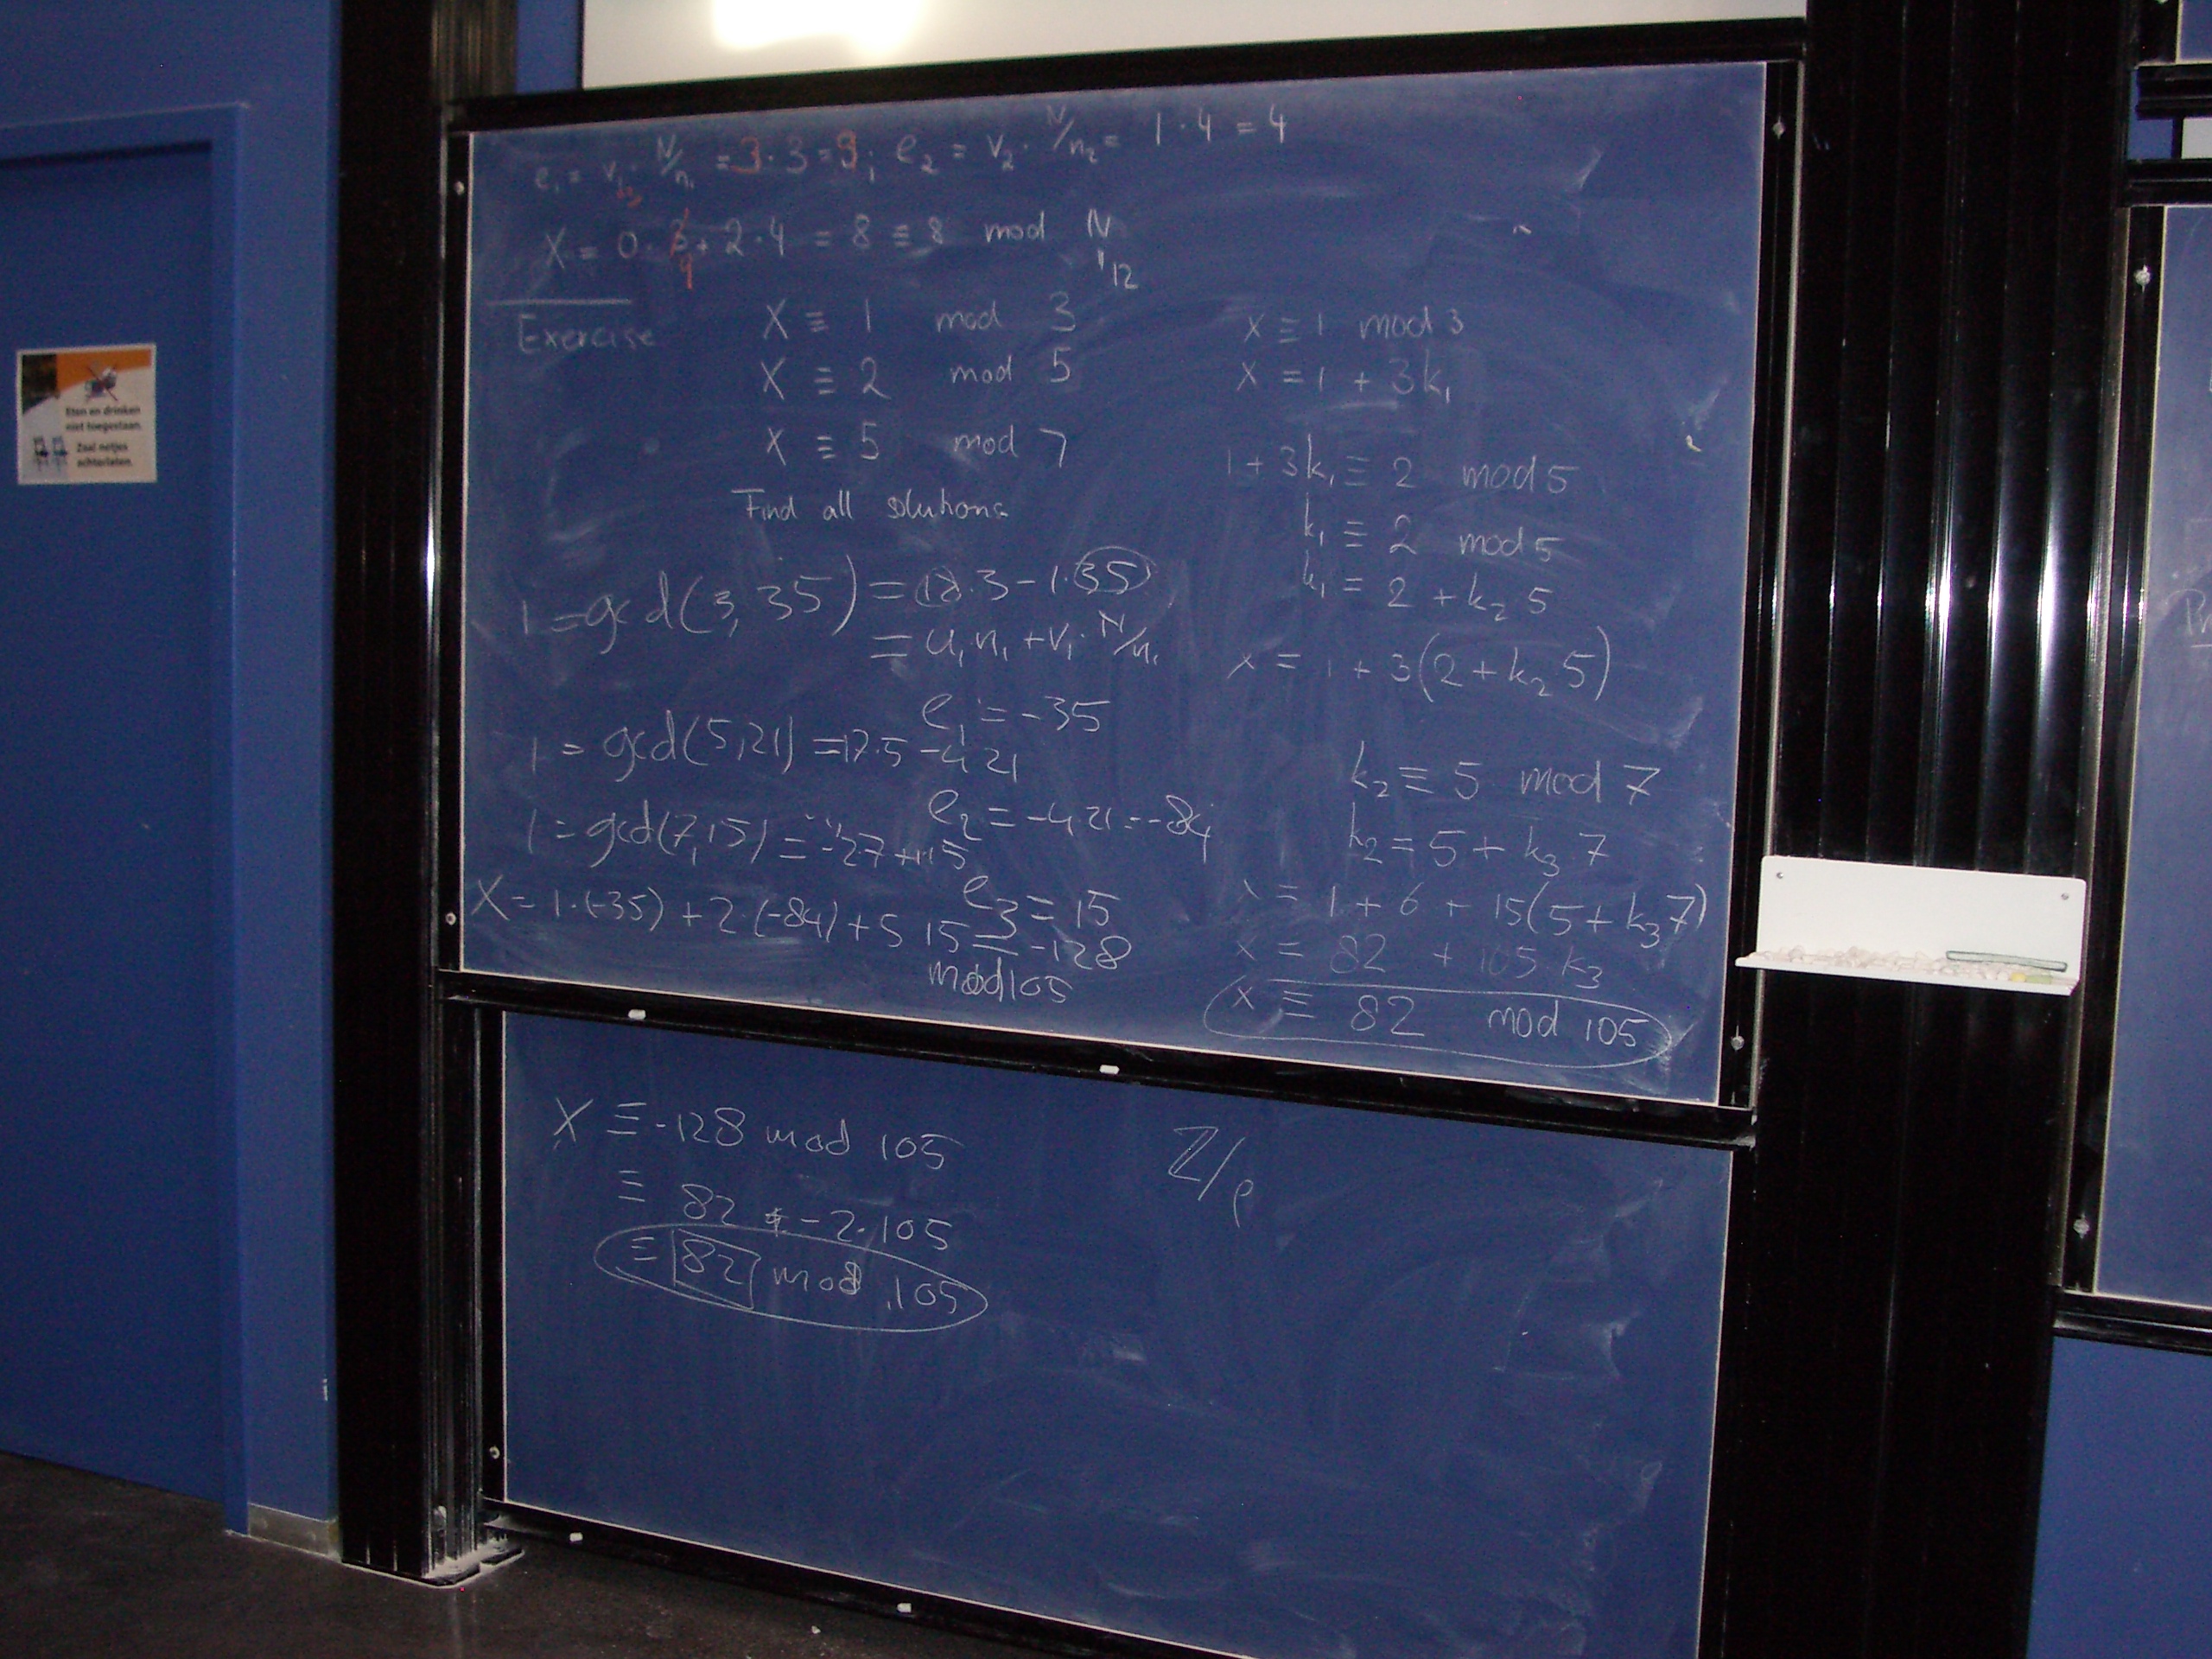 e₁ = v₁ · N/n₁ = 3 · 3 = 9; e₂ = v₂ · N/n₂ = 1 · 4 = 4
X = 0 · 9 + 2 · 4 = 8 ≡ 8 mod N
12
Exercise
X ≡ 1 mod 3
X ≡ 2 mod 5
X ≡ 5 mod 7
Find all solutions
1 = gcd(3, 35) = 12·3 - 1·35
= u₁n₁ + v₁· N/n₁
e₁ = -35
1 = gcd(5,21) = 17·5 - 4 21
e₂ = -4 21 = -84
1 = gcd(7,15) = -2 7 + 1·15
e₃ = 15
X = 1·(-35) + 2·(-84) + 5 15 = -128
mod 105
x ≡ 1 mod 3
x = 1 + 3k₁
1 + 3k₁ ≡ 2 mod 5
k₁ ≡ 2 mod 5
k₁ = 2 + k₂ 5
x = 1 + 3(2 + k₂ 5)
k₂ ≡ 5 mod 7
k₂ = 5 + k₃ 7
x = 1 + 6 + 15(5 + k₃ 7)
x = 82 + 105 k₃
x ≡ 82 mod 105
X ≡ -128 mod 105
≡ 82 + -2·105
≡ 82 mod 105
ℤ/p
Eten en drinken
niet toegestaan.
Zaal netjes
achterlaten.